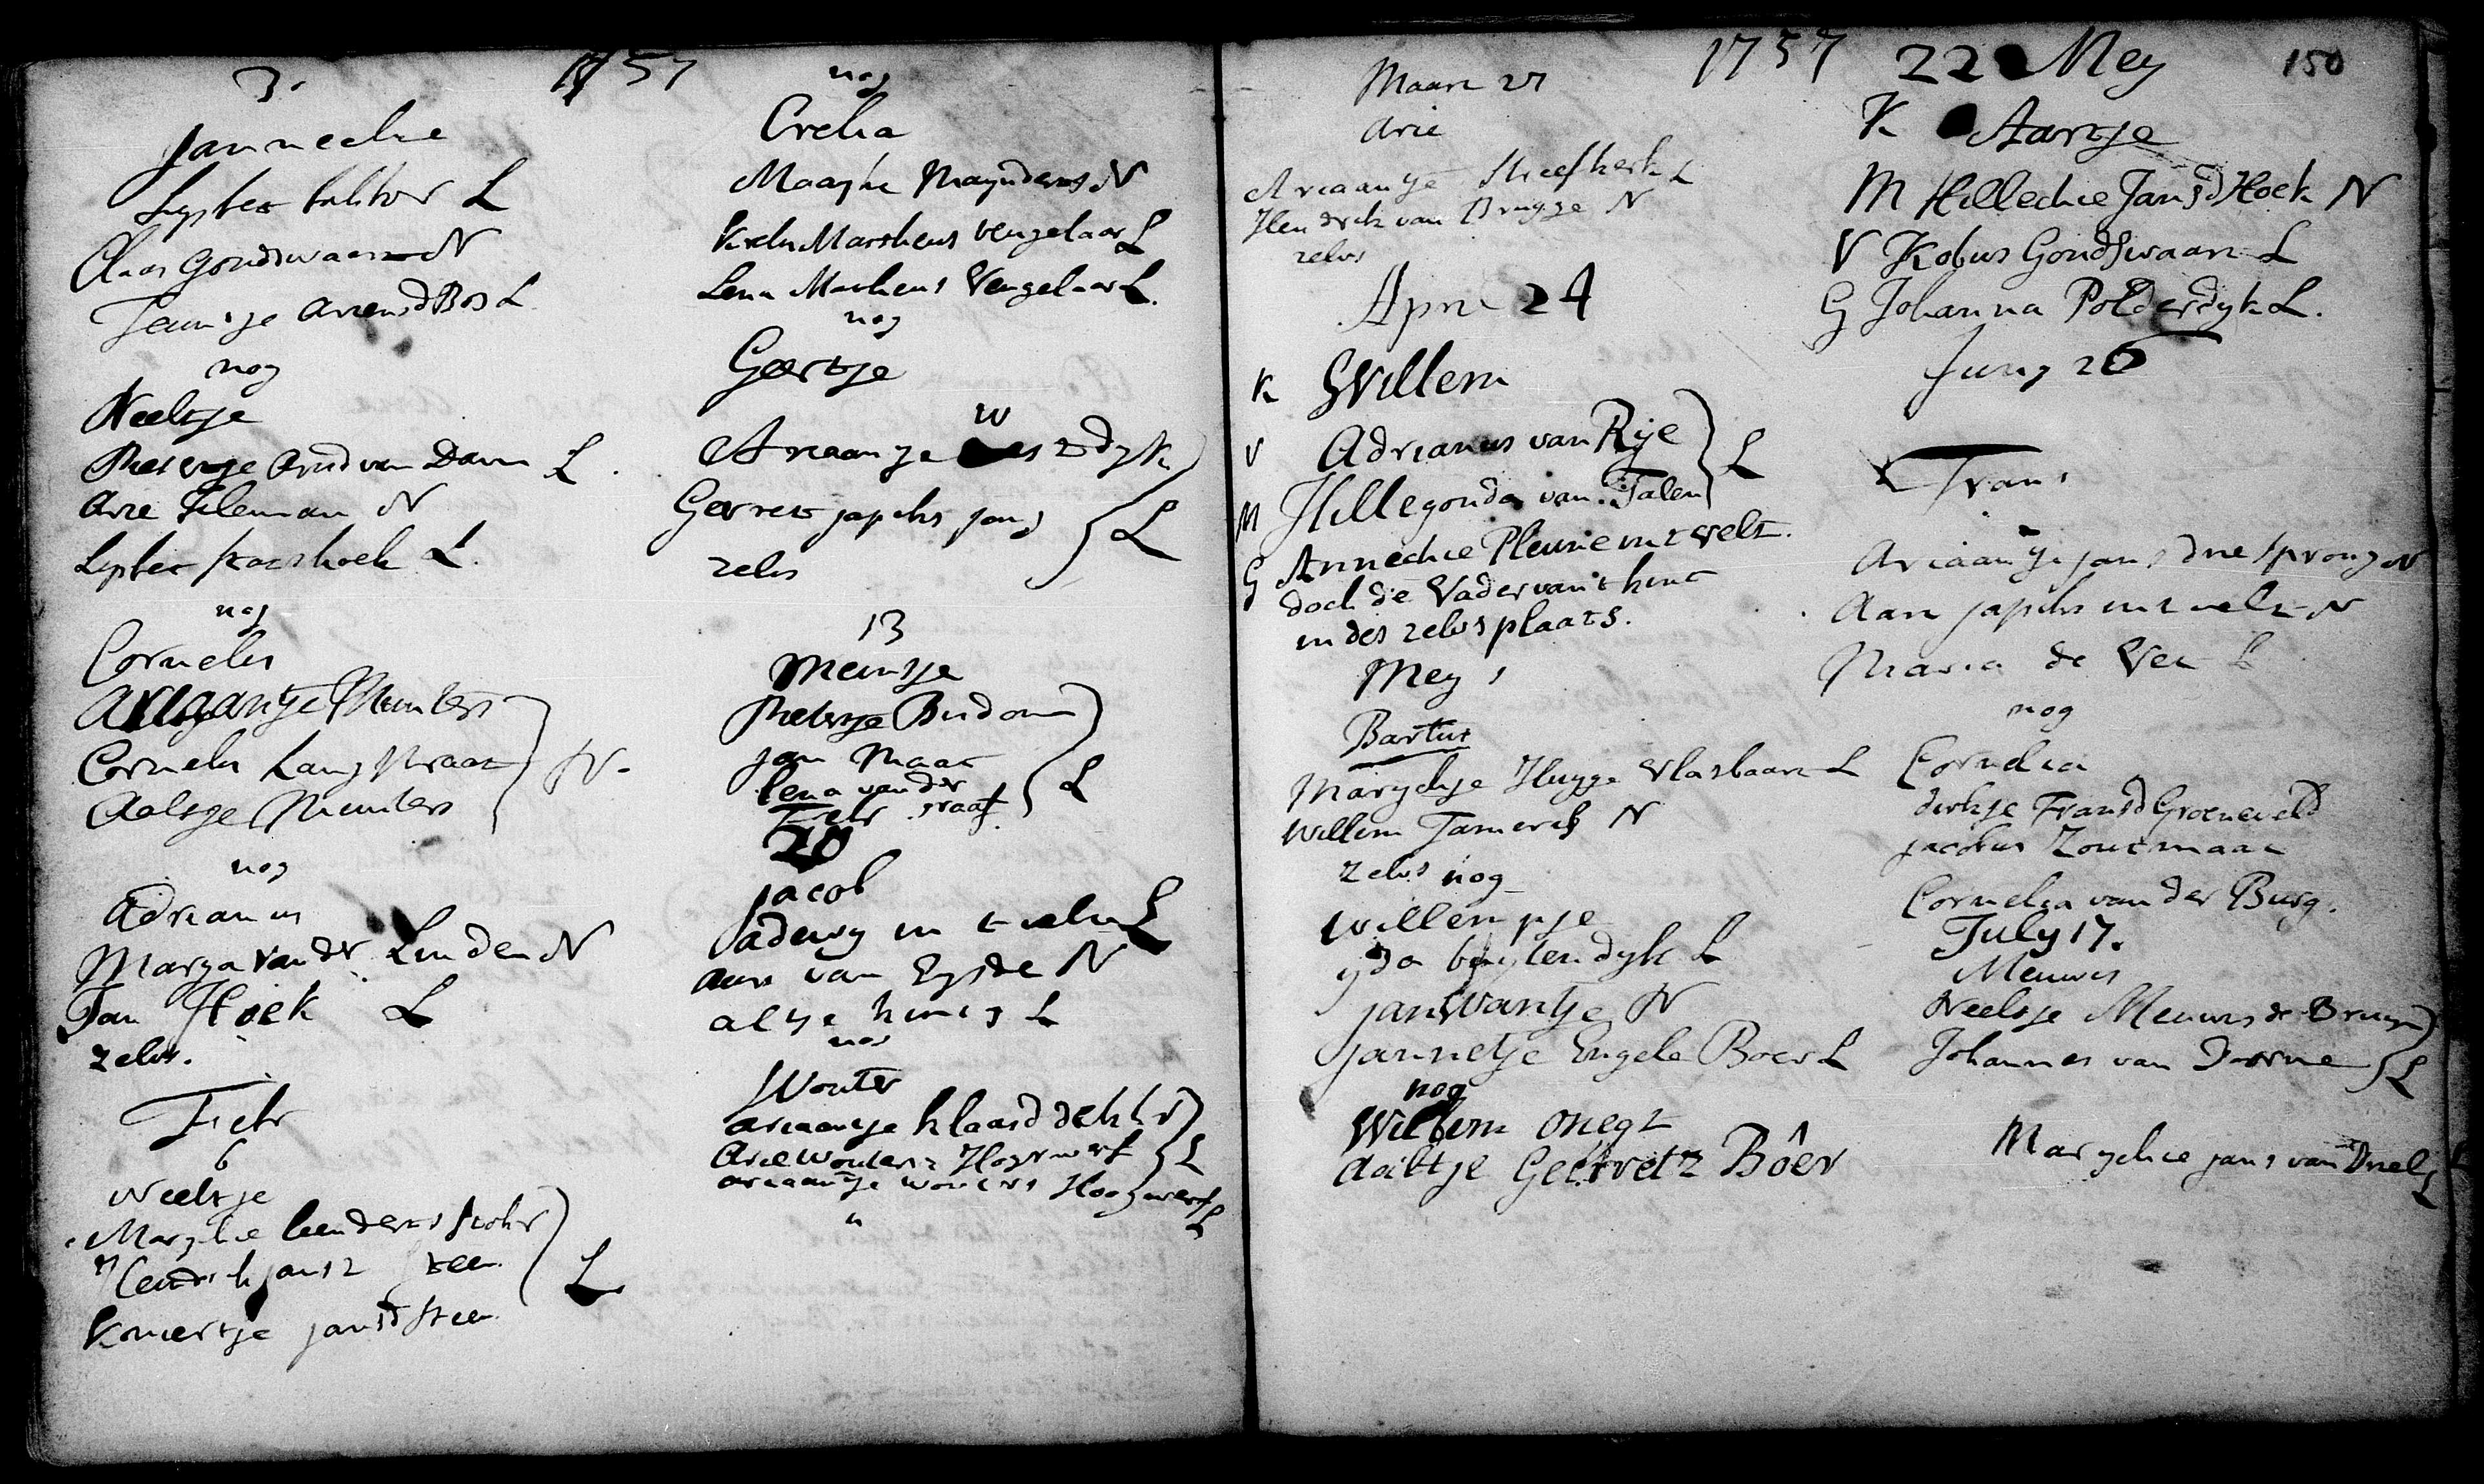 3.
1757
Jannechie
Lysbet L
Claas Goudswaart N
Teuntje Ariens d Bos L
nog
Neeltje
Pietertje van Dam L
Arie Tileman N
Lysbet L
nog
Cornelis
Ariaantje Munters
Cornelis Langstraat N.
Aaltje Munters
nog
Adrianus
Marya van der Linden N
Jan Hoek L
zelvs.
Febr
6
Neeltje
Marychie Leenderts
Hendrik Jansz Steen L
Kniertje Jansd Steen
nog
Crelia
Maayke Maynderts N
Krelis Matheus Vengelaar L
Lena Matheus Vengelaar L.
nog
Geertje
W
Ariaantje es dyk
Gerret Japiks Jong L
zelvs
13
Meinsje
Pietertje Budom
Jan Maat L
Lena van der
Febr Graaf.
20
Jacob
in t L
Aart van Eysde N
Altje L
nog
Wouter
Ariaantje Klaasd Dekker
Arie Woutersz Hogerwerf L
Ariaantje Wouters Hoogwerf L
Maart 27
Arie
Ariaantje Streefkerk L
Hendrik van Brugge N
zelvs
April 24
K Willem
V Adrianus van Rye L
M Hillegonda van Talen
G Annechie Pleune in t Velt.
doch de Vader van t kint
in des zelvs plaats.
Mey 1
Bartus
Marychje Huyge Vlasbaart L
Willem Tameris N
zelvs nog
Willempje
Yda Buytendyk L
Jan Wantje N
Jannetje Engele Boer L
nog
Willem Onegt
Aailtje Geerretz Boer
1757 22 Mey 150
K Aartje
M Hillechie Jansd Hoek N
V Kobus Goudswaart L
G Johanna Polderdyk L.
Juny 26
Frans
Ariaantje Jans Driesprong N
Aart Japiks in t Velt N
Maria de Vet L
nog
Cornelia
Dirkje Fransd Groeneveld
Jacobus Zoutmaat
Cornelia van der Burg.
July 17.
Meuwis
Neeltje Meuwis de Bruyn
Johannes van Dorne L
Marychie Jans van Driel L